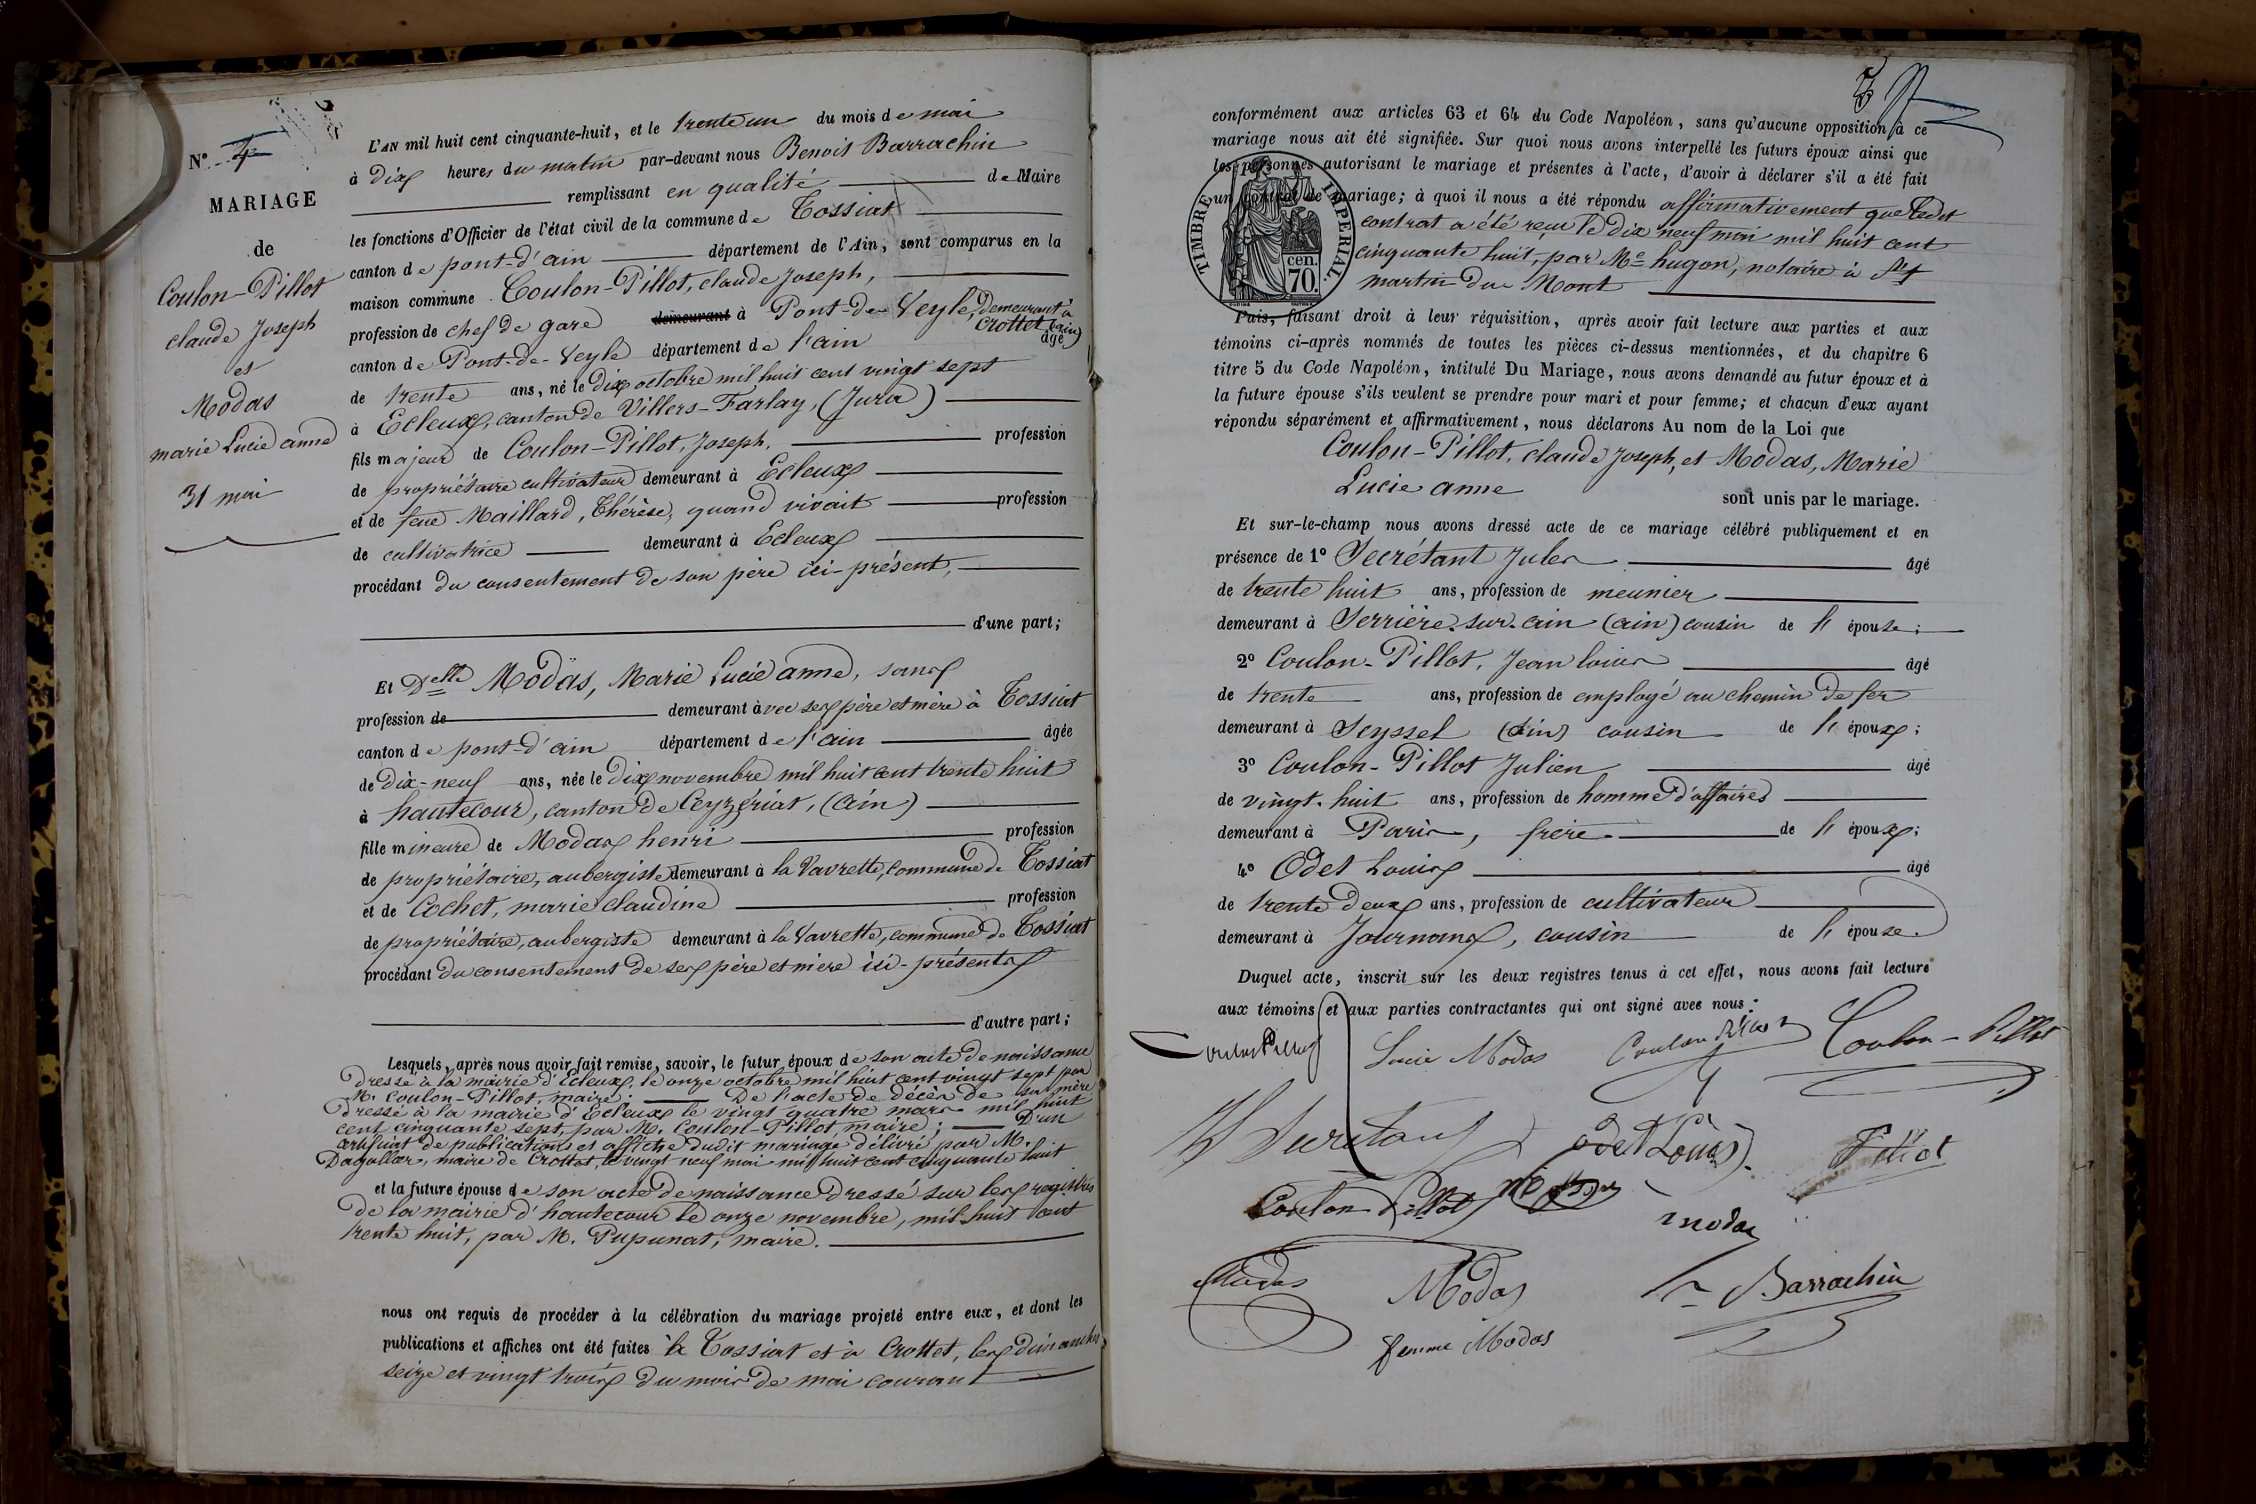 N° 4
MARIAGE
de
Coulon-Pillot
claude Joseph
et
Modas
marie Lucie anne
31 mai
L'AN mil huit cent cinquante-huit, et le trente un du mois de mai
à dix heures du matin par-devant nous Benoit Barrachin
remplissant en qualité de Maire
les fonctions d'Officier de l'état civil de la commune de Tossiat
canton de pont-d'ain département de l'Ain, sont comparus en la
maison commune Coulon-Pillot, claude Joseph,
profession de chef de gare demeurant à Pont-de-Veyle, demeurant à
Crottet (ain)
canton de Pont-de-Veyle département de l'ain âgé
de trente ans, né le dix octobre mil huit cent vingt sept
à Ecleux, canton de Villers-Farlay, (Jura)
fils majeur de Coulon-Pillot, Joseph, profession
de propriétaire cultivateur demeurant à Ecleux
et de feue Maillard, Thérèse, quand vivait profession
de cultivatrice demeurant à Ecleux
procédant du consentement de son père ici-présent,
d'une part;
Et Delle Modas, Marie Lucie anne, sans
profession de demeurant avec ses père et mère à Tossiat
canton de pont-d'ain département de l'ain âgée
de dix-neuf ans, née le dix novembre mil huit cent trente huit
à hautecour, canton de Ceyzériat, (Ain)
fille mineure de Modas henri profession
de propriétaire, aubergiste demeurant à la Vavrette, commune de Tossiat
et de Cochet, marie claudine profession
de propriétaire, aubergiste demeurant à la Vavrette, commune de Tossiat
procédant du consentement de ses père et mère ici-présents
d'autre part;
Lesquels, après nous avoir fait remise, savoir, le futur époux de son acte de naissance
dressé à la mairie d'Ecleux, le onze octobre mil huit cent vingt sept par
M. Coulon-Pillot, maire; De l'acte de décès de sa mère
dressé à la mairie d'Ecleux le vingt quatre mars mil huit
cent cinquante sept, par M. Coulon-Pillot maire; D'un
certificat de publications et affiche dudit mariage délivré par M.
maire de Crottet, le vingt neuf mai mil huit cent cinquante huit
et la future épouse de son acte de naissance dressé sur les registres
de la mairie d'hautecour le onze novembre, mil huit cent
trente huit, par M. Pupunat, maire.
nous ont requis de procéder à la célébration du mariage projeté entre eux, et dont les
publications et affiches ont été faites à Tossiat et à Crottet, les dimanches
seize et vingt trois du mois de mai courant
conformément aux articles 63 et 64 du Code Napoléon, sans qu'aucune opposition à ce
mariage nous ait été signifiée. Sur quoi nous avons interpellé les futurs époux ainsi que
les personnes autorisant le mariage et présentes à l'acte, d'avoir à déclarer s'il a été fait
un contrat de mariage; à quoi il nous a été répondu affirmativement que ledit
contrat a été reçu le dix neuf mai mil huit cent
cinquante huit, par Me hugon, notaire à St
martin du Mont
TIMBRE IMPERIAL.
cen.
70.
Puis, faisant droit à leur réquisition, après avoir fait lecture aux parties et aux
témoins ci-après nommés de toutes les pièces ci-dessus mentionnées, et du chapitre 6
titre 5 du Code Napoléon, intitulé Du Mariage, nous avons demandé au futur époux et à
la future épouse s'ils veulent se prendre pour mari et pour femme; et chacun d'eux ayant
répondu séparément et affirmativement, nous déclarons Au nom de la Loi que
Coulon-Pillot, claude Joseph, et Modas, Marie
Lucie anne
sont unis par le mariage.
Et sur-le-champ nous avons dressé acte de ce mariage célébré publiquement et en
présence de 1° Secrétant Jules âgé
de trente huit ans, profession de meunier
demeurant à Serrière-sur-ain (ain) cousin de l' épouse;
2° Coulon-Pillot, Jean louis âgé
de trente ans, profession de employé au chemin de fer
demeurant à Seyssel (Ain) cousin de l' époux;
3° Coulon-Pillot Julien âgé
de vingt-huit ans, profession de homme d'affaires
demeurant à Paris, frère de l' époux;
4° Odet Louis âgé
de trente deux ans, profession de cultivateur
demeurant à Journans, cousin de l' épouse.
Duquel acte, inscrit sur les deux registres tenus à cet effet, nous avons fait lecture
aux témoins et aux parties contractantes qui ont signé avec nous:
Lucie Modas
Coulon Pillot
Coulon-Pillot
Odet Louis
Coulon Pillot
modas
Modas
Modas
Barrachin
femme Modas